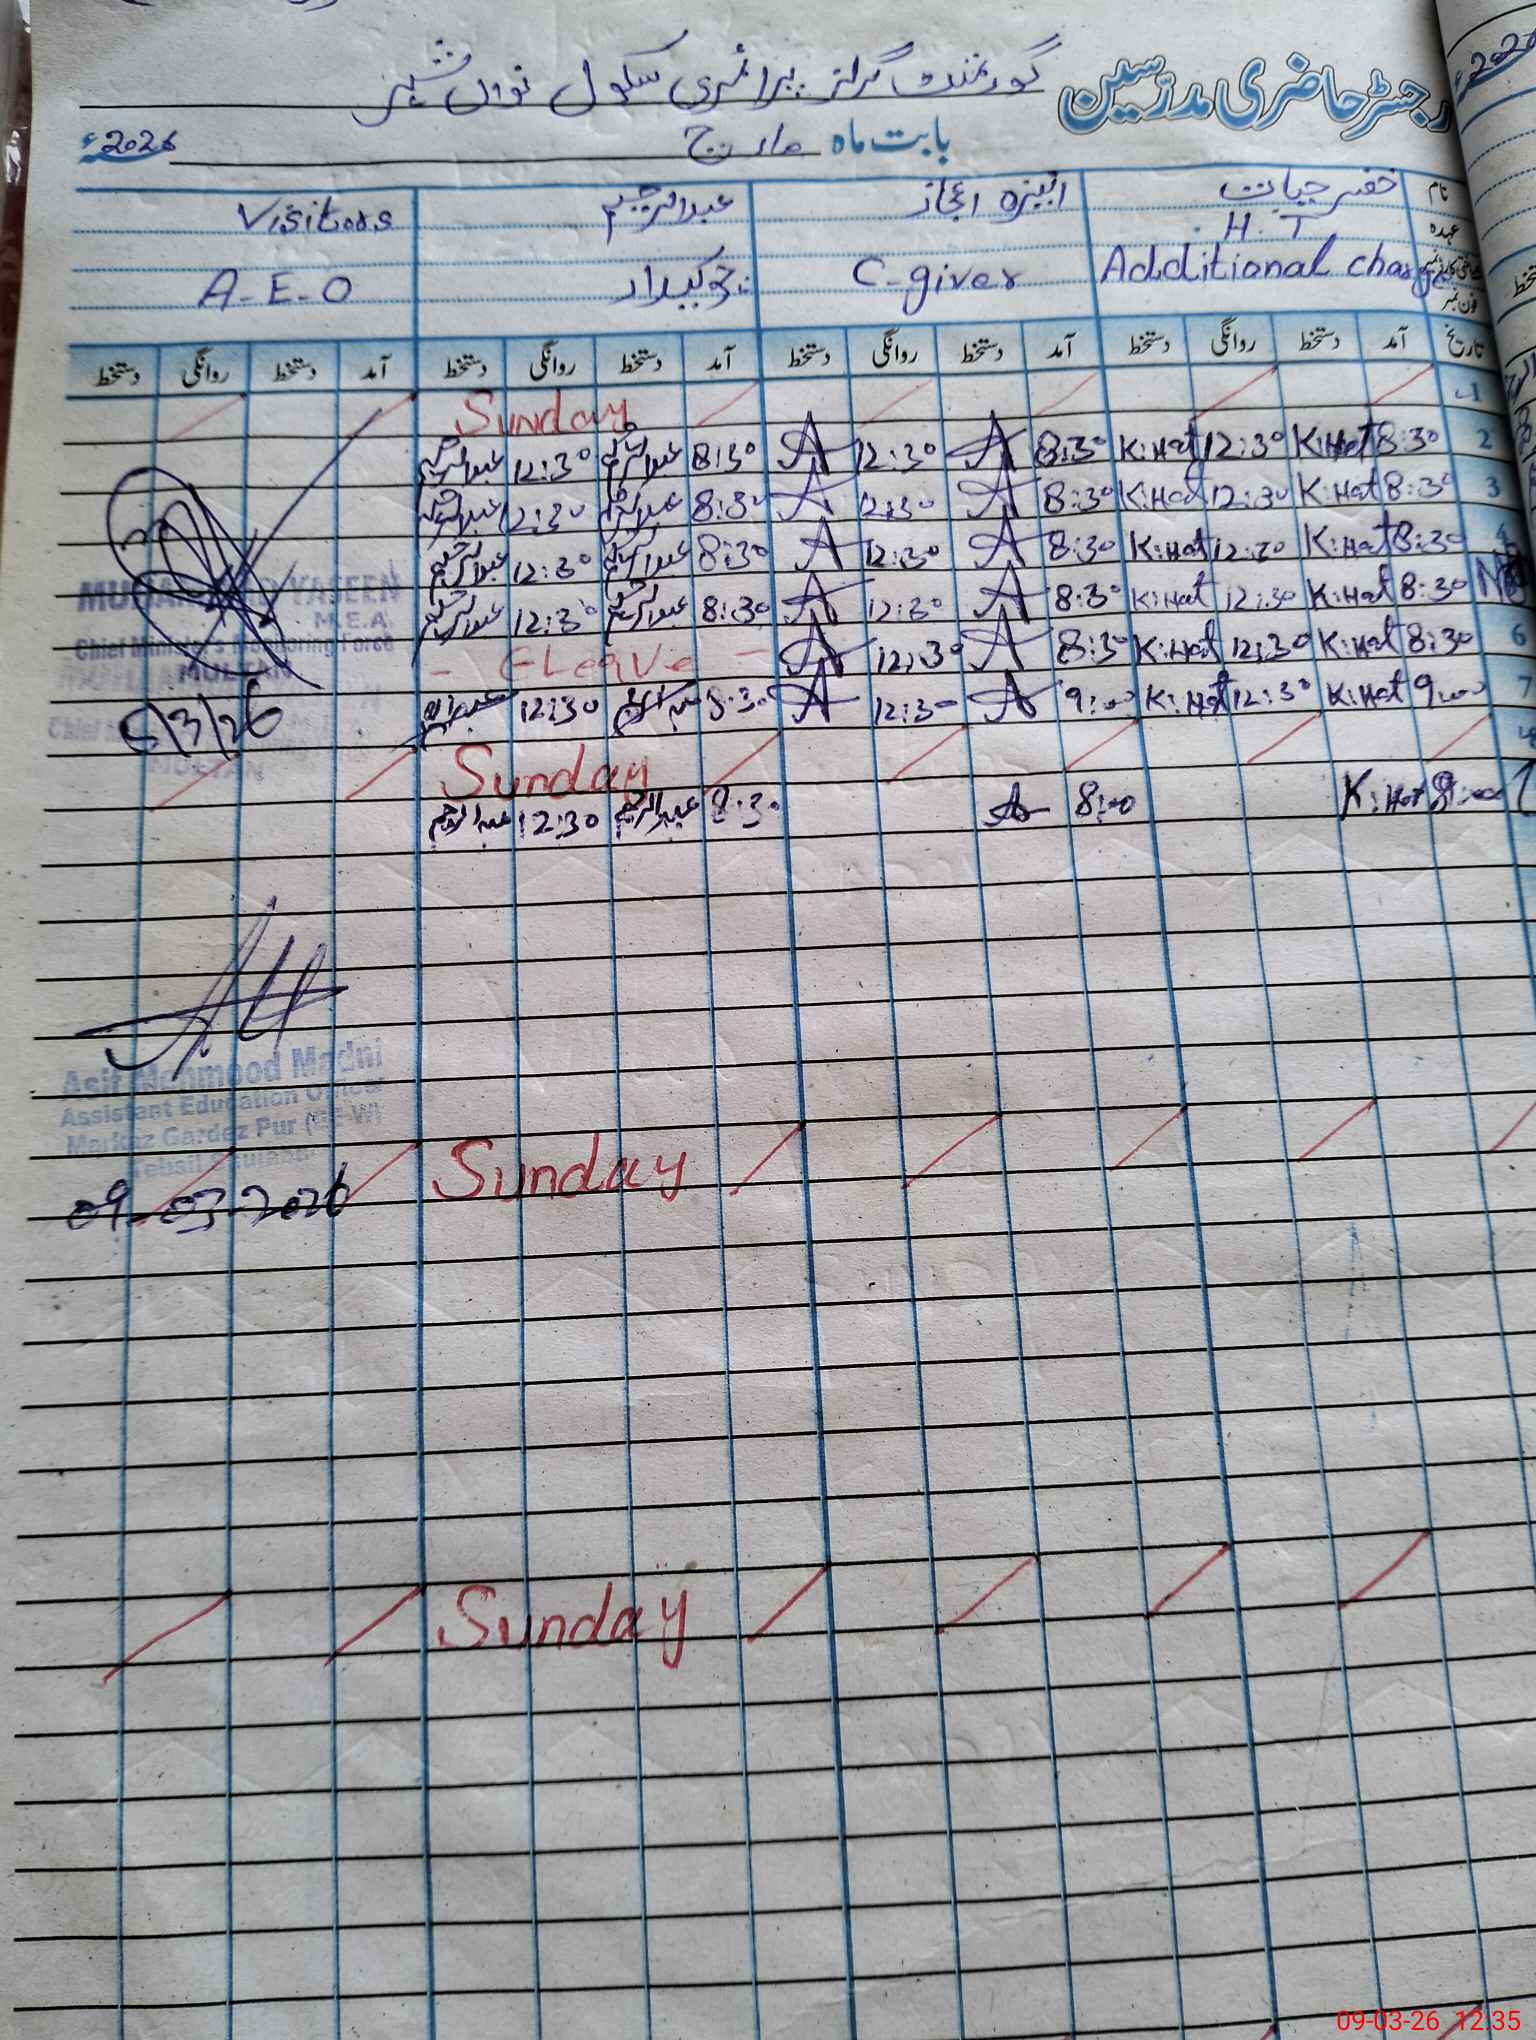 رجسٹر حاضری مدرسین گورنمنٹ گرلز پرائمری سکول نواں شہر
بابت ماہ مارچ 2026ء
نام خضر حیات انیزہ اعجاز عبدالرحیم Visitors
عہدہ H.T
Additional charg C-giver چوکیدار A-E-O
فون نمبر
تاریخ آمد دستخط روانگی دستخط آمد دستخط روانگی دستخط آمد دستخط روانگی دستخط آمد دستخط روانگی دستخط
1 Sunday
2 8:30 K:Hat 12:30 K:Hat 8:30 A 12:30 A 8:30 عبدالرحیم 12:30 عبدالرحیم
3 8:30 K:Hat 12:30 K:Hat 8:30 A 12:30 A 8:30 عبدالرحیم 12:30 عبدالرحیم
4 8:30 K:Hat 12:30 K:Hat 8:30 A 12:30 A 8:30 عبدالرحیم 12:30 عبدالرحیم
8:30 K:Hat 12:30 K:Hat 8:30 A 12:30 A 8:30 عبدالرحیم 12:30 عبدالرحیم
6 8:30 K:Hat 12:30 K:Hat 8:30 A 12:30 A - C Leave -
7 9:00 K:Hat 12:30 K:Hat 9:00 A 12:30 A 8:30 عبدالرحیم 12:30 عبدالرحیم
Sunday
K:Hat 8:00 A 8:30 عبدالرحیم 12:30 عبدالرحیم
YASEEN
M.E.A
Chief Minister's Monitoring Force
MULTAN
5/3/26
Asif Mehmood Madni
Assistant Education Officer
Markaz Gardez Pur (EE-W)
Tehsil
09-03-2026
Sunday
Sunday
09-03-26 12:35